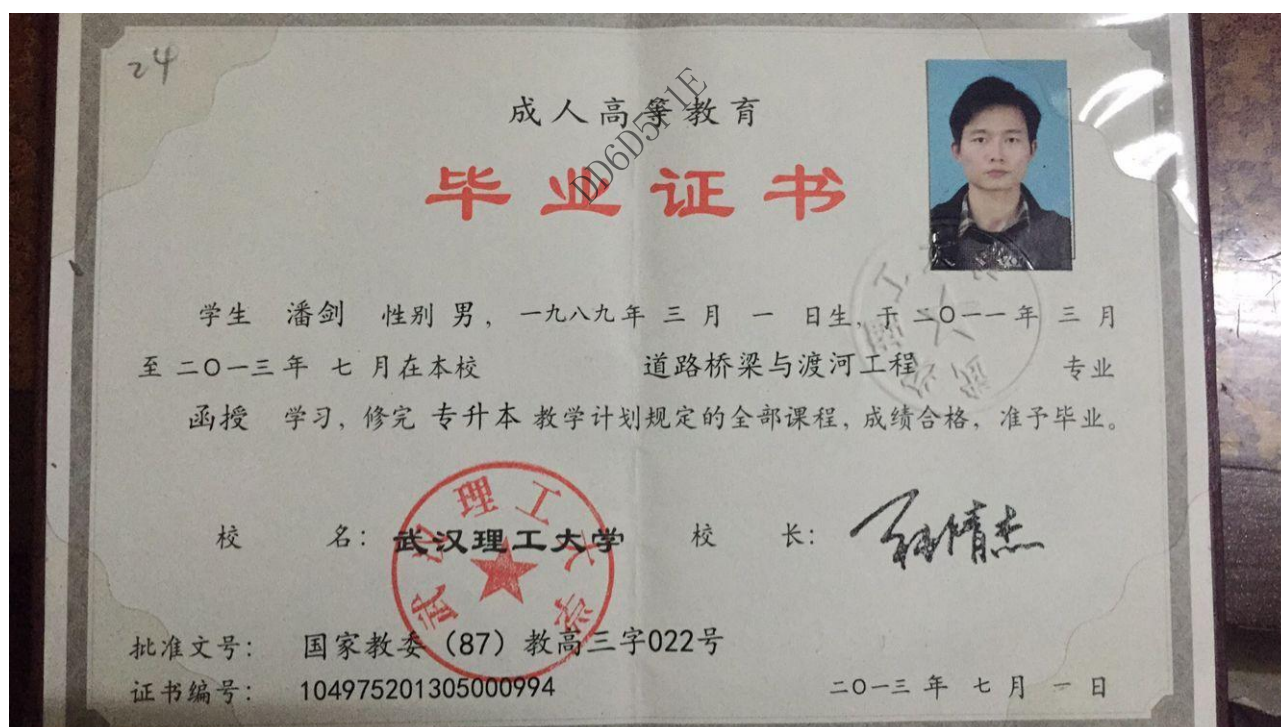 24
成人高等教育
DD6D5F1E
毕业证书
学生 潘剑 性别 男，一九八九年 三 月 一 日生，于二〇一一年 三 月
至 二〇一三年 七 月在本校 道路桥梁与渡河工程 专业
函授 学习，修完 专升本 教学计划规定的全部课程，成绩合格，准予毕业。
校 名：武汉理工大学 校 长：
武汉理工大学
批准文号： 国家教委（87）教高三字022号
证书编号： 104975201305000994 二〇一三 年 七 月 一 日